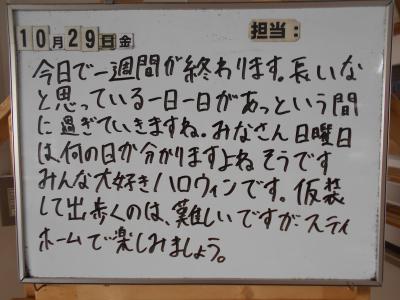 10月29日金 担当:
今日で一週間が終わります。長いな
と思っている一日一日があっという間
に過ぎていきますね。みなさん日曜日
は、何の日か分かりますよねそうです
みんな大好きハロウィンです。仮装
して出歩くのは、難しいですが、スティ
ホームで楽しみましょう。